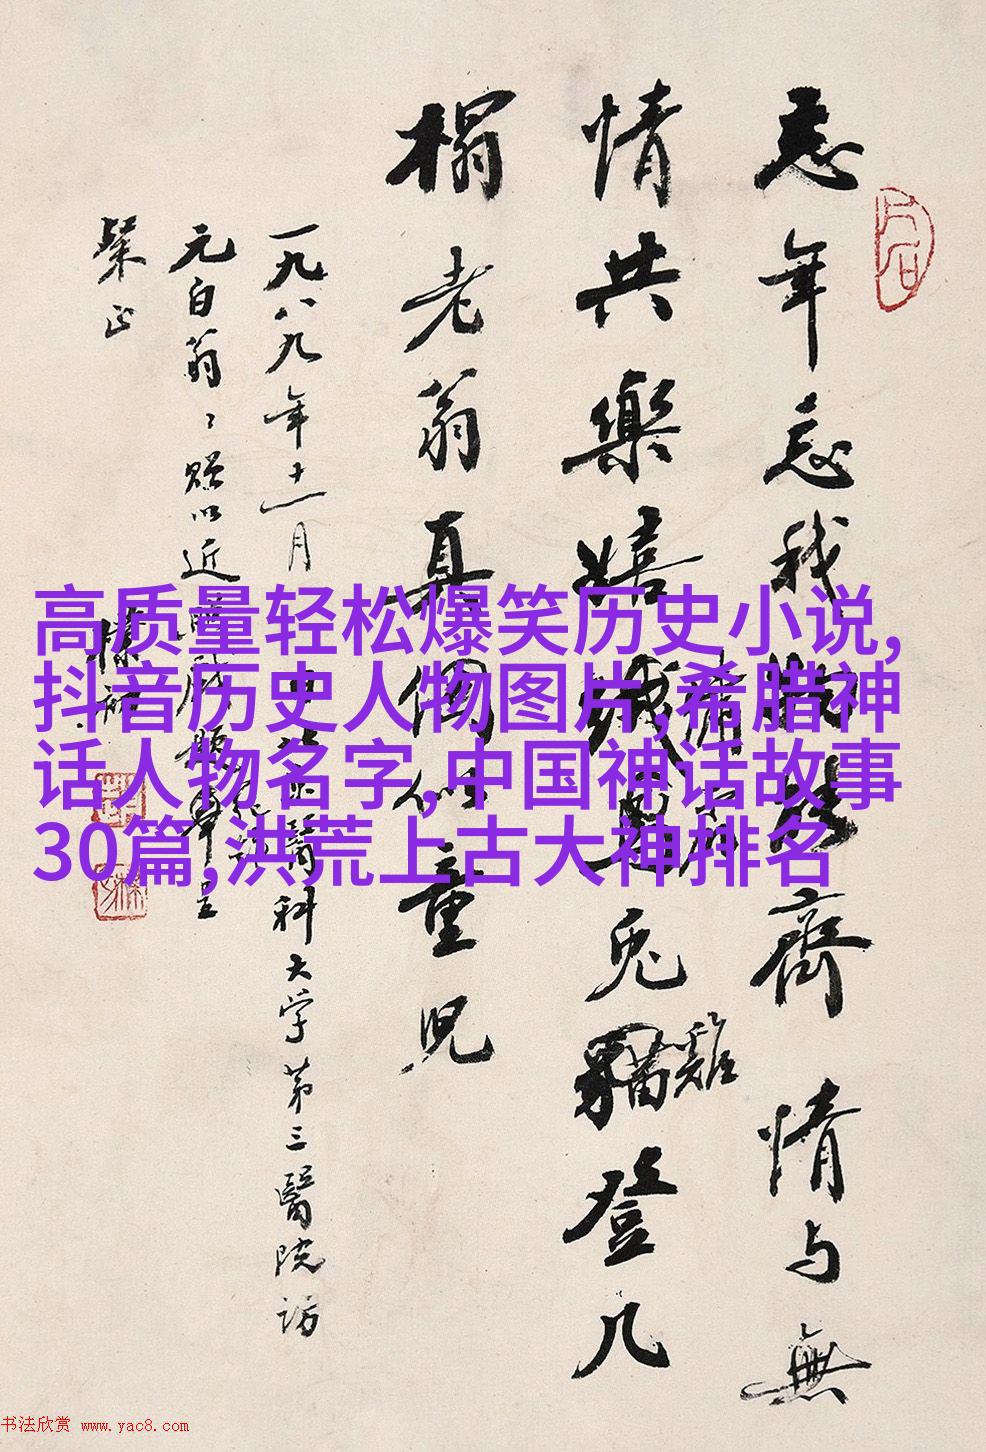 忘年忘我齊情与無
情共樂嬉兎貓登几
雞
榻老翁真個似童兒
一九八九年十一月醫科大学第三醫院訪
元白翁〻賜以近題奉呈
粲正
高质量轻松爆笑历史小说,
抖音历史人物图片,希腊神
话人物名字,中国神话故事
30篇,洪荒上古大神排名
书法欣赏 www.yac8.com